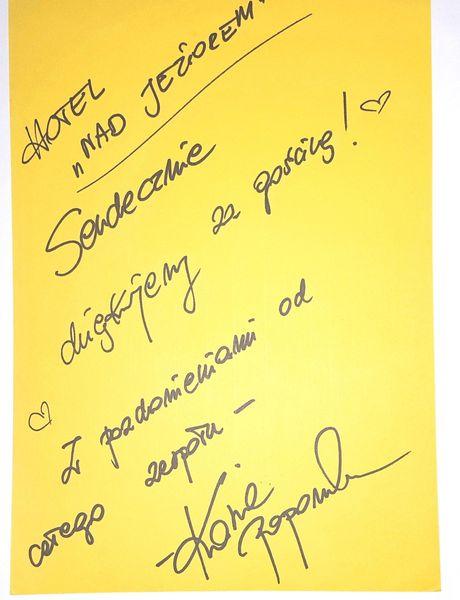 HOTEL
"NAD JEZIOREM"
Serdecznie
dziękujemy za gościnę!
Z pozdrowieniami od
całego zespołu -
- Kasia